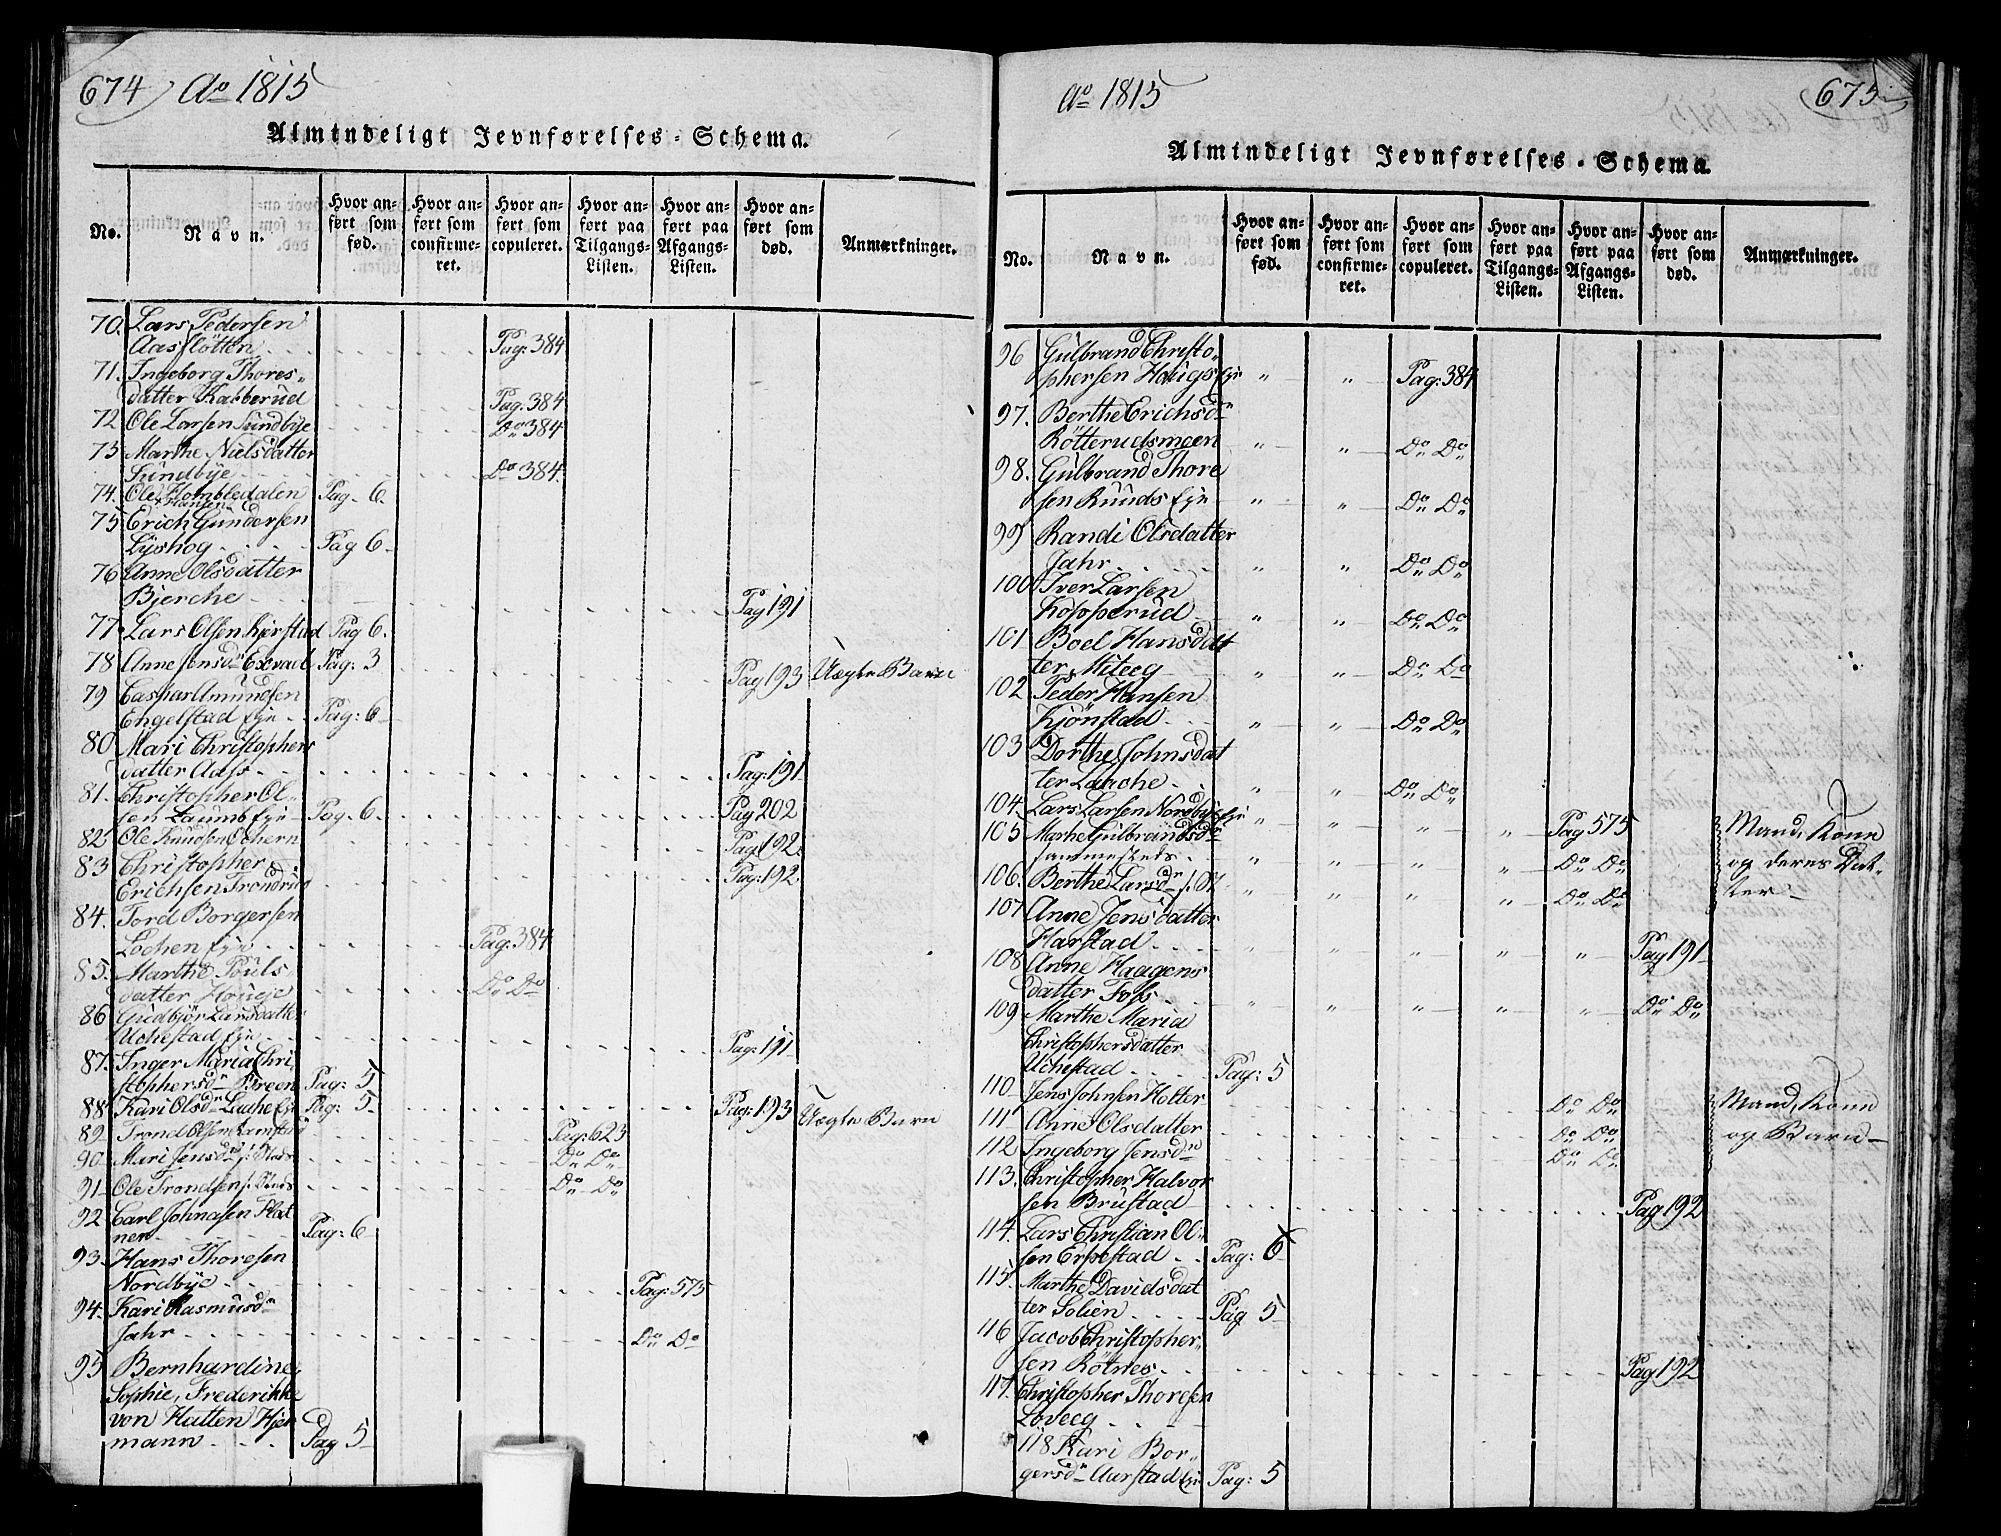 674 Ao 1815
Almindeligt Jevnførelses-Schema.
No.
Navn.
Hvor an-
ført som
fød.
Hvor an-
ført som
confirme-
ret.
Hvor an-
ført som
copuleret.
Hvor an-
ført paa
Tilgangs-
Listen.
Hvor an-
ført paa
Afgangs-
Listen.
Hvor an-
ført som
død.
Anmærkninger.
70. Lars Pedersen
Aasslötten Pag: 384
71. Ingeborg Thores„
datter Kabberud Pag: 384
72 Ole Larsen Sundbye Do 384
73 Marthe Nielsdatter
Sundbye Do 384.
74. Ole Hombledalen Pag. 6.
Hansen
75 Erich Gundersen
Lyshog Pag 6
76 Anne Olsdatter
Bjerche Pag 191
77 Lars Olsen Kjerstad Pag 6.
78 Anne Jensdr Exvad Pag: 3 Pag 193 Uægte Barn
79 Caspar Amundsen
Engelstad Eje Pag: 6
80 Mari Christophers
datter Aass Pag: 191
81. Christopher Ol-
sen Laumb Eje Pag. 6. Pag 202
82 Ole Knudsen Ochern Pag 192.
83 Christopher
Erichsen Trondrud Pag: 192.
84. Tord Borgersen
Lochen Eje Pag: 384
85. Marthe Pouls
datter Houeje Do Do
86 Gudbjör Larsdatter
Uchestad Eje Pag: 191
87. Inger Maria Chri
stophersdr Breen Pag: 5
88 Kari Olsdr Lache Eje Pag: 5 Pag: 193 Uægte Barn
89. Trond Olsen Pag: 623
90. Mari Jensdr Do Do
91 Ole Trondsen Do Do
92 Carl Johnasen Flat
nen Pag: 6
93. Hans Thoresen
Nordbye Pag: 575
94. Kari Rasmusdr
Jahr Do Do
95 Bernhardine,
Sophie, Frederikke
von Hatten Hjer
mann Pag 5
Ao 1815 675
Almindeligt Jevnførelses-Schema.
No.
Navn.
Hvor an-
ført som
fød.
Hvor an-
ført som
confirme-
ret.
Hvor an-
ført som
copuleret.
Hvor an-
ført paa
Tilgangs-
Listen.
Hvor an-
ført paa
Afgangs-
Listen.
Hvor an-
ført som
død.
Anmærkninger.
96 Gulbrand Christo„
phersen Haugs Eje „ „ Pag: 384
97. Berthe Erichsdr
Rötterudsmoen „ „ Do Do
98. Gulbrand Thore
sen Ruuds Eje „ „ Do Do
99 Randi Olsdatter
Jahr „ „ Do Do
100 Iver Larsen
Kopperud „ „ Do Do
101 Boel Hansdat
ter Miteeg „ „ Do Do
102 Peder Hansen
Kjönstad „ „ Do Do
103 Dorthe Johnsdat
ter Laache „ „ Do Do
104. Lars Larsen Nordbye Eje „ „ „ „ Pag 575 Mand, Kone
105 Marthe Gulbrandsdr
sammesteds „ „ „ „ Do Do og deres Dat-
106. Berthe Larsdr „ „ „ „ Do Do ter
107 Anne Jensdatter
Harstad „ „ „ „ „ Pag 191
108 Anne Haagens
datter Foss „ „ „ „ „ Do Do
109 Marthe Maria
Christophersdatter
Uchestad Pag: 5
110 Jens Johnsen Holter Do Do Mand, Kone
111 Anne Olsdatter Do Do og Barn
112 Ingeborg Jensdr Do Do
113. Christopher Halvor
sen Brustad Pag 192
114. Lars Christian Ol-
sen Erpestad Pag: 6
115. Marthe Davidsdat
ter Solien Pag 5
116 Jacob Christopher„
sen Rötnes Pag 192
117. Christopher Thoresen
Loveeg
118 Kari Bor-
gersdr Aurstad Eje Pag: 5